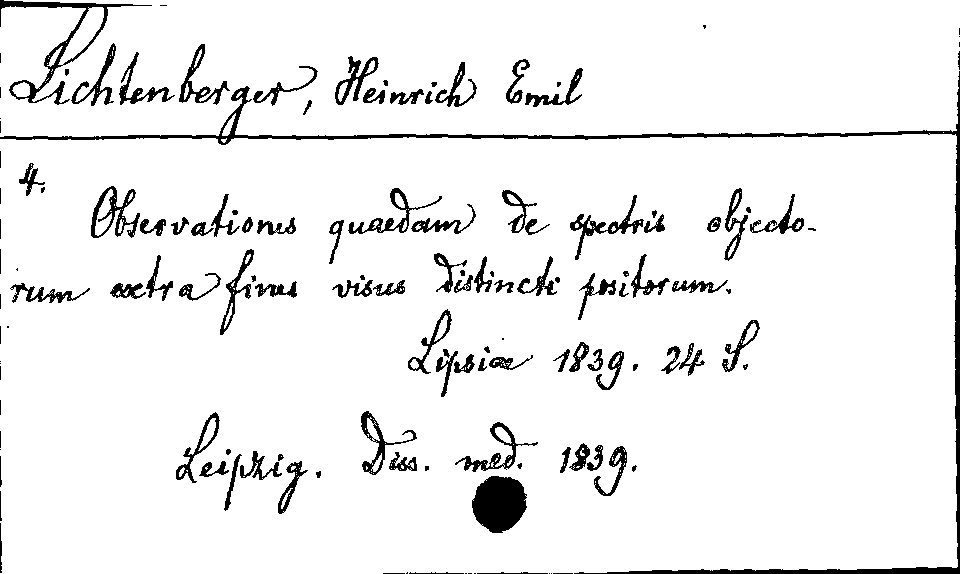 Lichtenberger, Heinrich Emil
4.
Observationes quaedam de spectris objecto-
rum extra fines visus distincti positorum.
Lipsiae 1839. 24 S.
Leipzig. Diss. med. 1839.